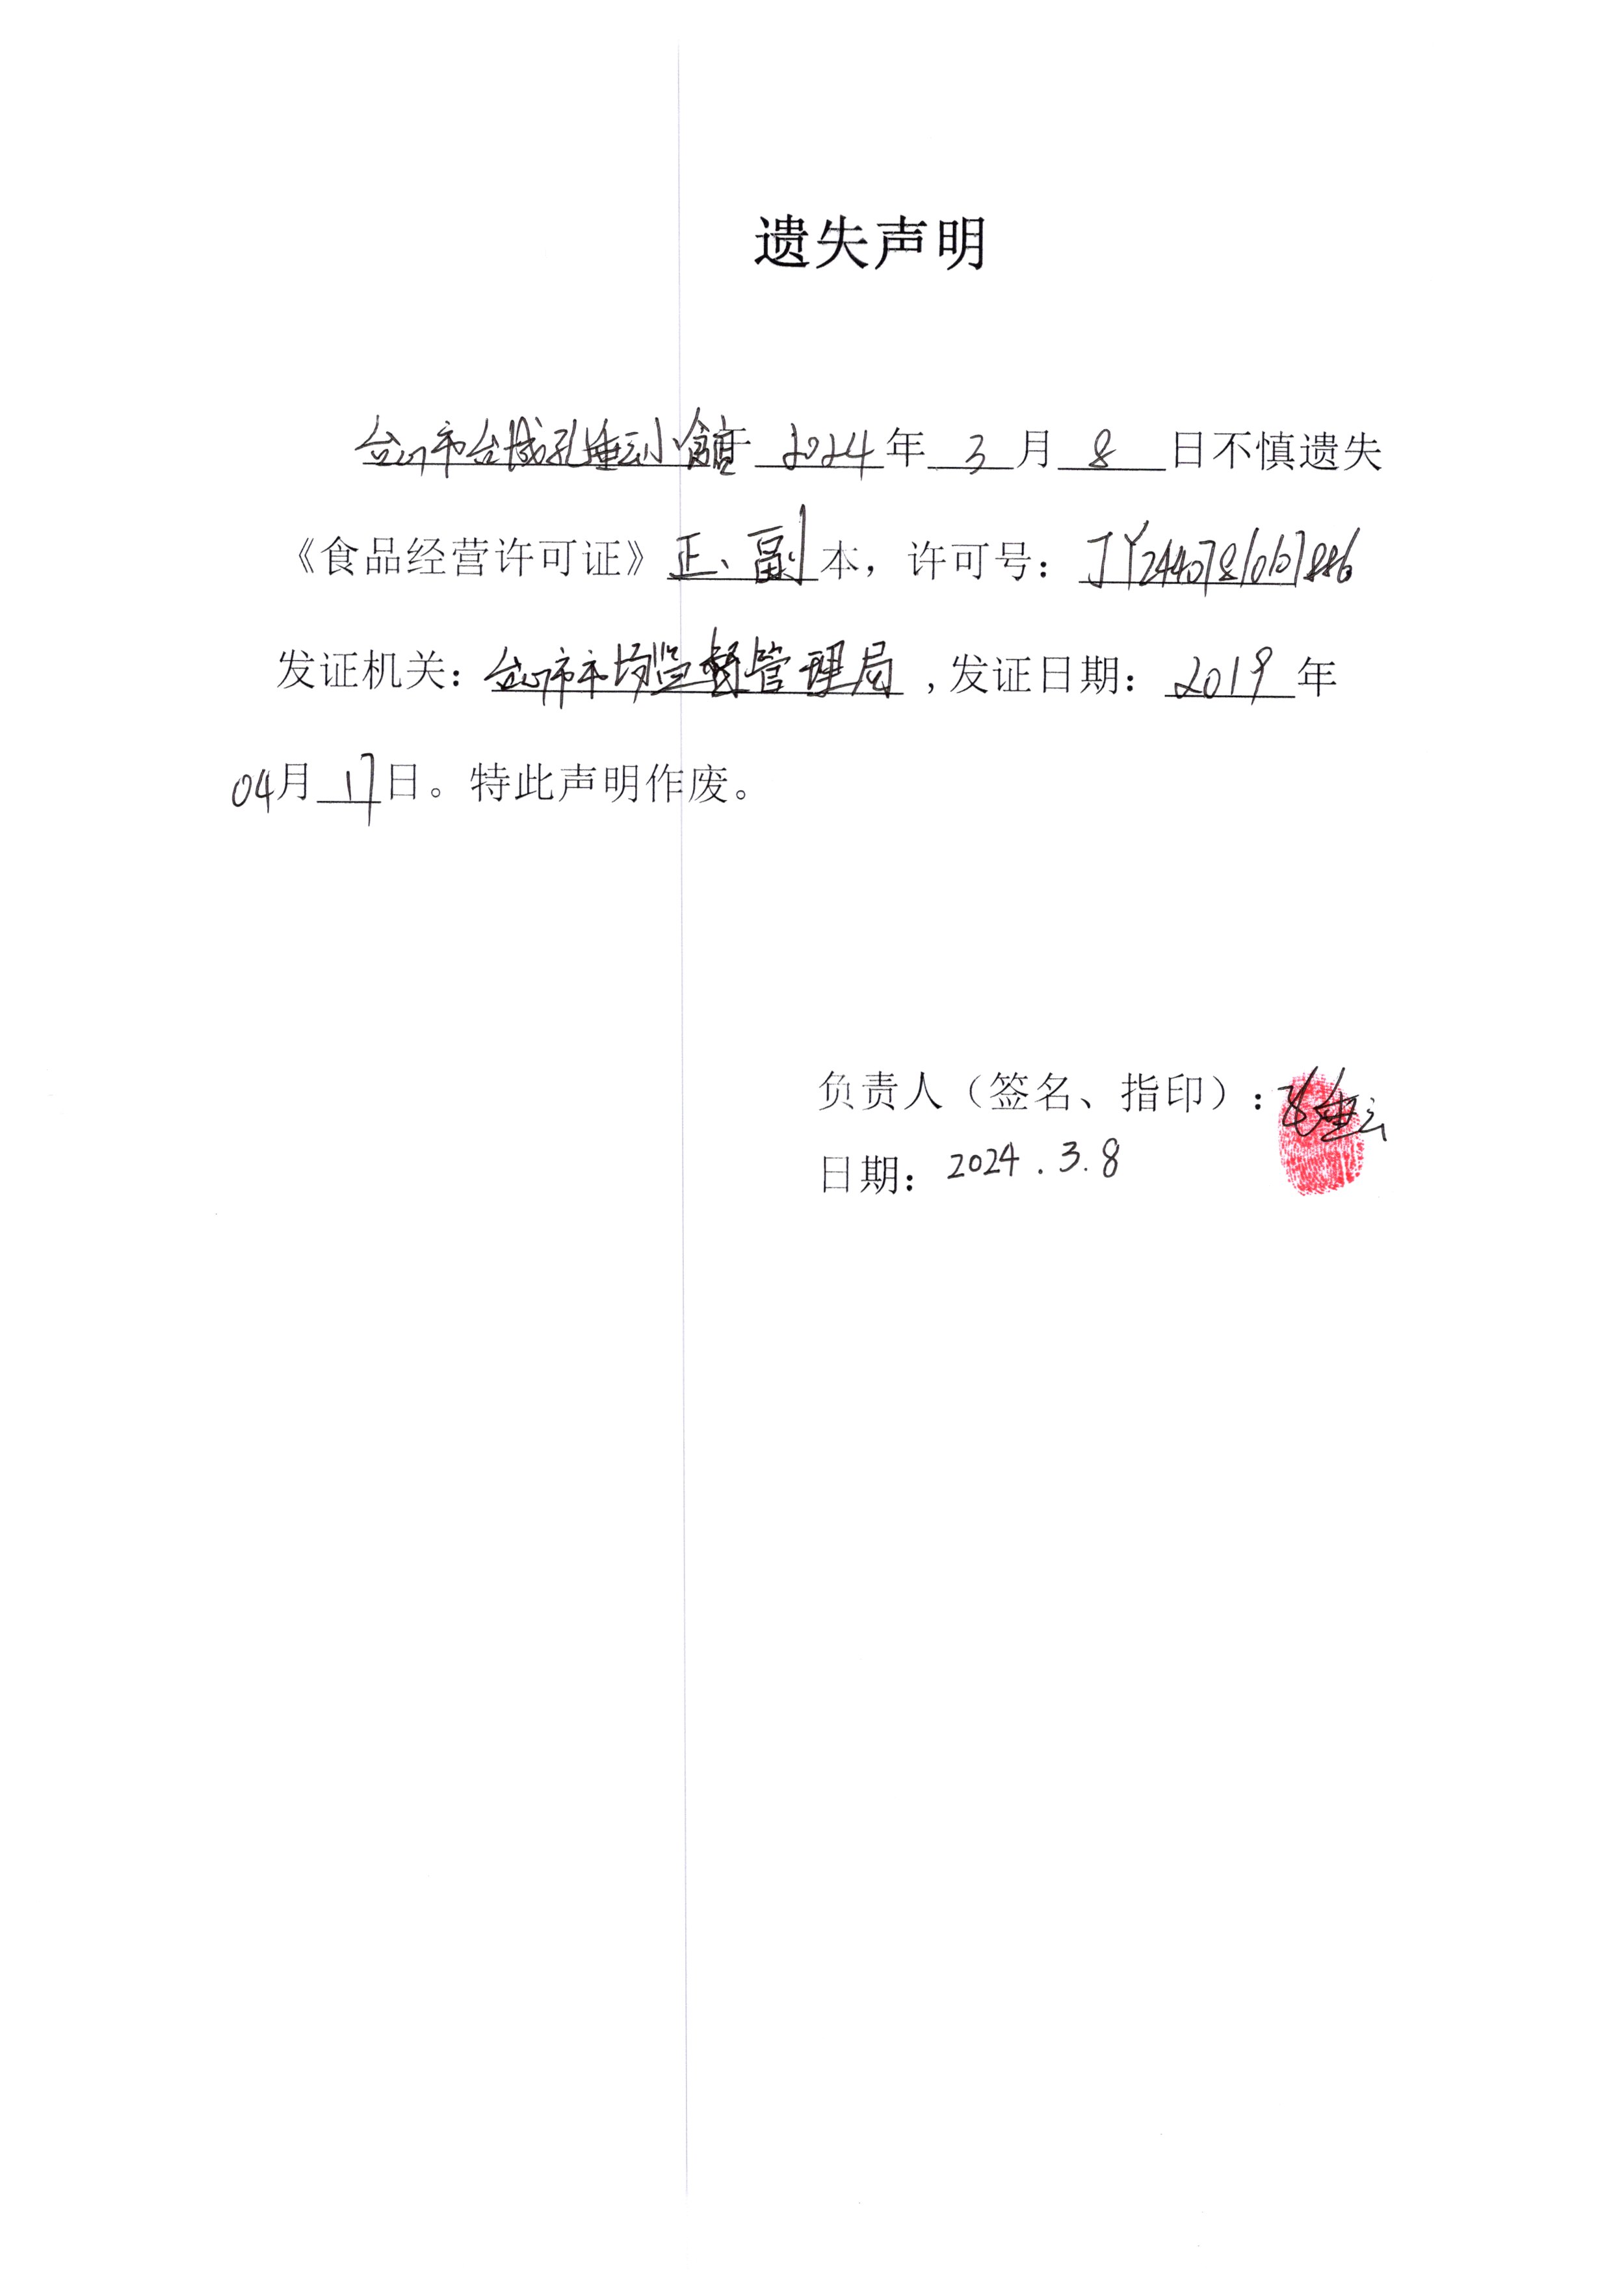 遗失声明
台山市台城孔连云小食馆于 2024 年 3 月 8 日不慎遗失
《食品经营许可证》正、副本，许可号：JY24407810107886
发证机关：台山市市场监督管理局，发证日期：2019 年
04月 17 日。特此声明作废。
负责人（签名、指印）：
日期：2024.3.8